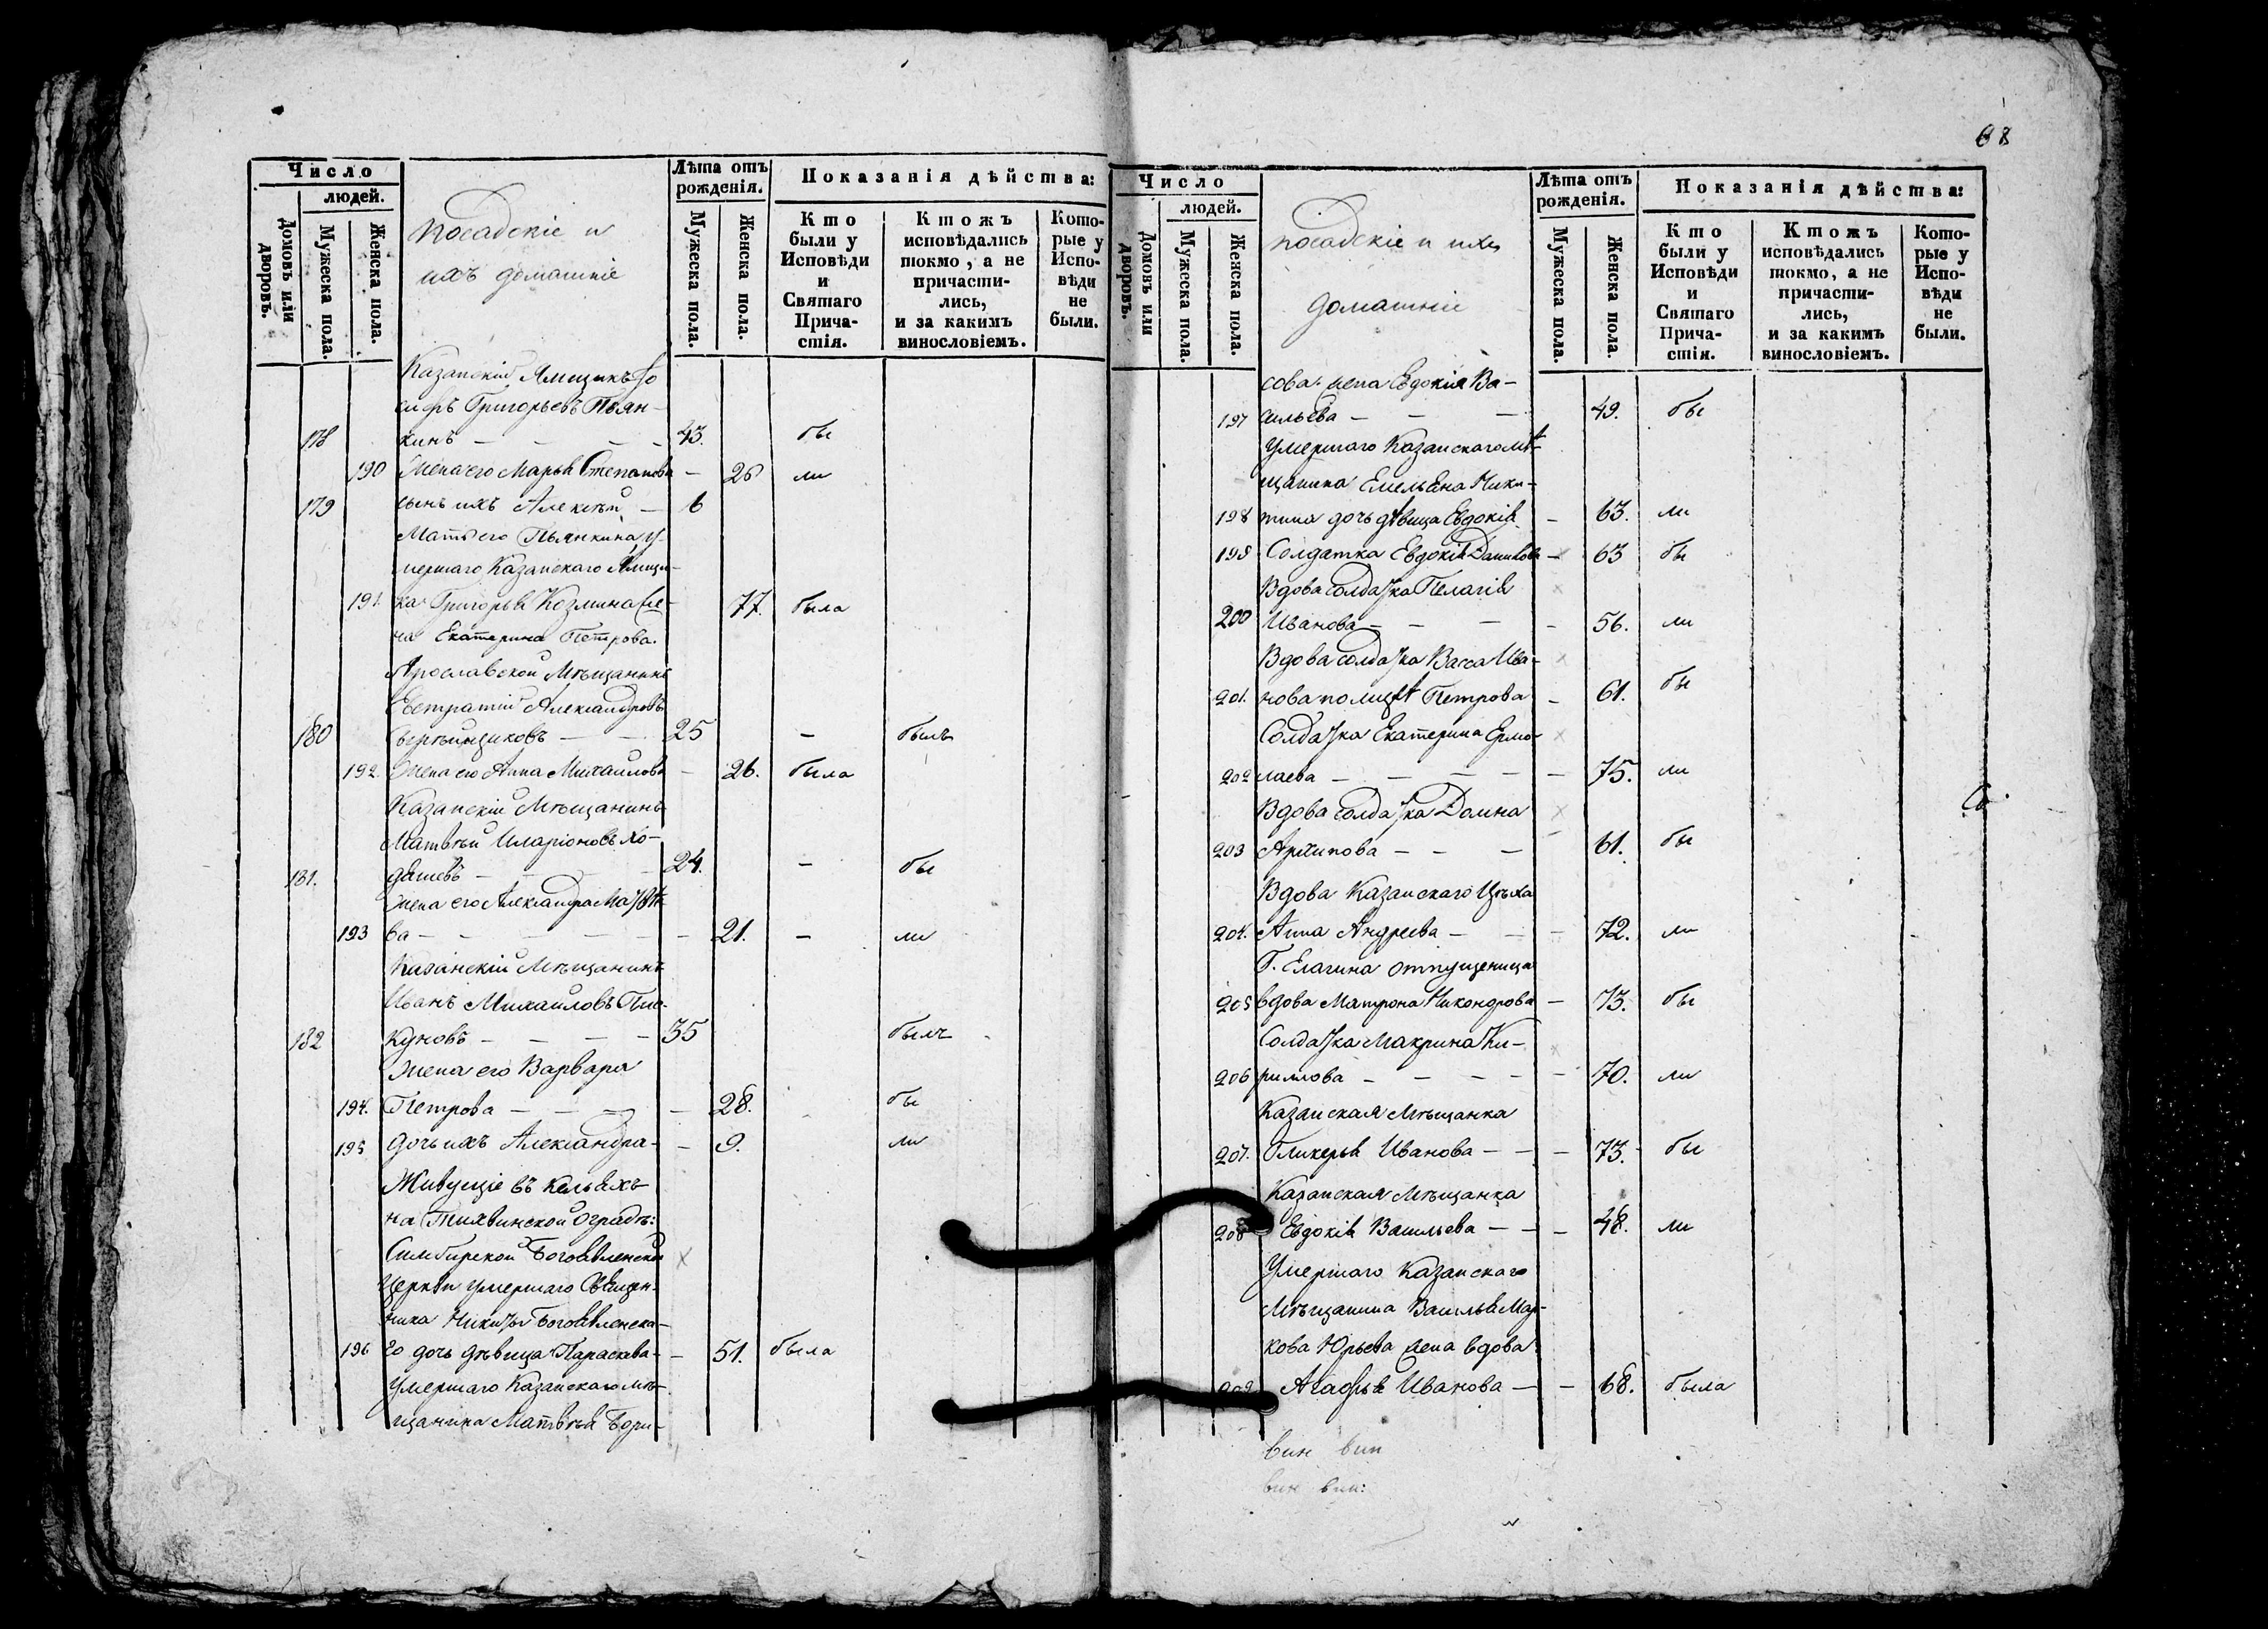 68
Число
людей.
Домовъ или дворовъ.
Мужеска пола.
Женска пола.
посадскіе и
ихъ домашніе
Лѣта отъ рожденія.
Мужеска пола.
Женска пола.
Показанія дѣйства:
Кто были у Исповѣди и Святаго Причастія.
Ктожъ исповѣдались токмо, а не причастились, и за какимъ винословіемъ.
Которые у Исповѣди не были.
Казанскій Ямщикъ Іо
сифъ Григорьевъ Пьян-
178 кинъ — 43. бы
190 Жена его Марья Степанова — 26 ли
179 сынъ ихъ Алексѣй — 6
Мать его Пьянкина, у-
мершаго Казанскаго Ямщи-
191. ка Григорья Козмина же- 77. была
на Екатерина Петрова.
Ярославской Мѣщанинъ
Евстратій Александровъ
180 25 — былъ
192. Жена его Анна Михайлова — 26. была
Казанскій Мѣщанинъ
Матвѣй Иларіоновъ Хо-
181. дяшевъ — 24. — бы
Жена его Александра Матвѣе
193 ва — 21. — ли
Казанскій Мѣщанинъ
Иванъ Михайловъ
182 куновъ — 35 былъ
Жена его Варвара
194. Петрова — 28. бы
195 Дочь ихъ Александра — 9. ли
Живущіе въ кельяхъ
на Тихвинской оградѣ:
Симбирской Богоявленской
Церкви умершаго Священ-
ника Никиты Богоявленска-
196 го дочь дѣвица Параскева — 51. была
Умершаго Казанскаго мѣ-
щанина Матвѣя Бори-
Число
людей.
Домовъ или дворовъ.
Мужеска пола.
Женска пола.
посадскіе и ихъ
домашніе
Лѣта отъ рожденія.
Мужеска пола.
Женска пола.
Показанія дѣйства:
Кто были у Исповѣди и Святаго Причастія.
Ктожъ исповѣдались токмо, а не причастились, и за какимъ винословіемъ.
Которые у Исповѣди не были.
сова жена Евдокія Ва-
197 сильева — 49. бы
Умершаго Казанскаго мѣ-
щанина Емельяна Ники-
198 тина дочь дѣвица Евдокія — 63. ли
199 Солдатка Евдокія Данилова — 63 бы
Вдова солдатка Пелагія
200 Иванова — 56. ли
Вдова солдатка Васса Ива-
201. нова по мужѣ Петрова — 61. бы
Солдатка Екатерина Ермо-
202 лаева — 75. ли
Вдова солдатка Домна
203 Архипова — 61. бы
Вдова Казанскаго Цѣха
204. Анна Андреева — 72. ли
Г. Елагина отпущеница
205 вдова Матрона Никонорова — 73. бы
Солдатка Макрина Ки-
206 рилова — 70. ли
Казанская Мѣщанка
207. Гликерья Иванова — 73. бы
Казанская Мѣщанка
208 Евдокія Васильева — 48. ли
Умершаго Казанскаго
Мѣщанина Василья Мар-
кова Юрьева жена вдова
209 Агафья Иванова — 68. была